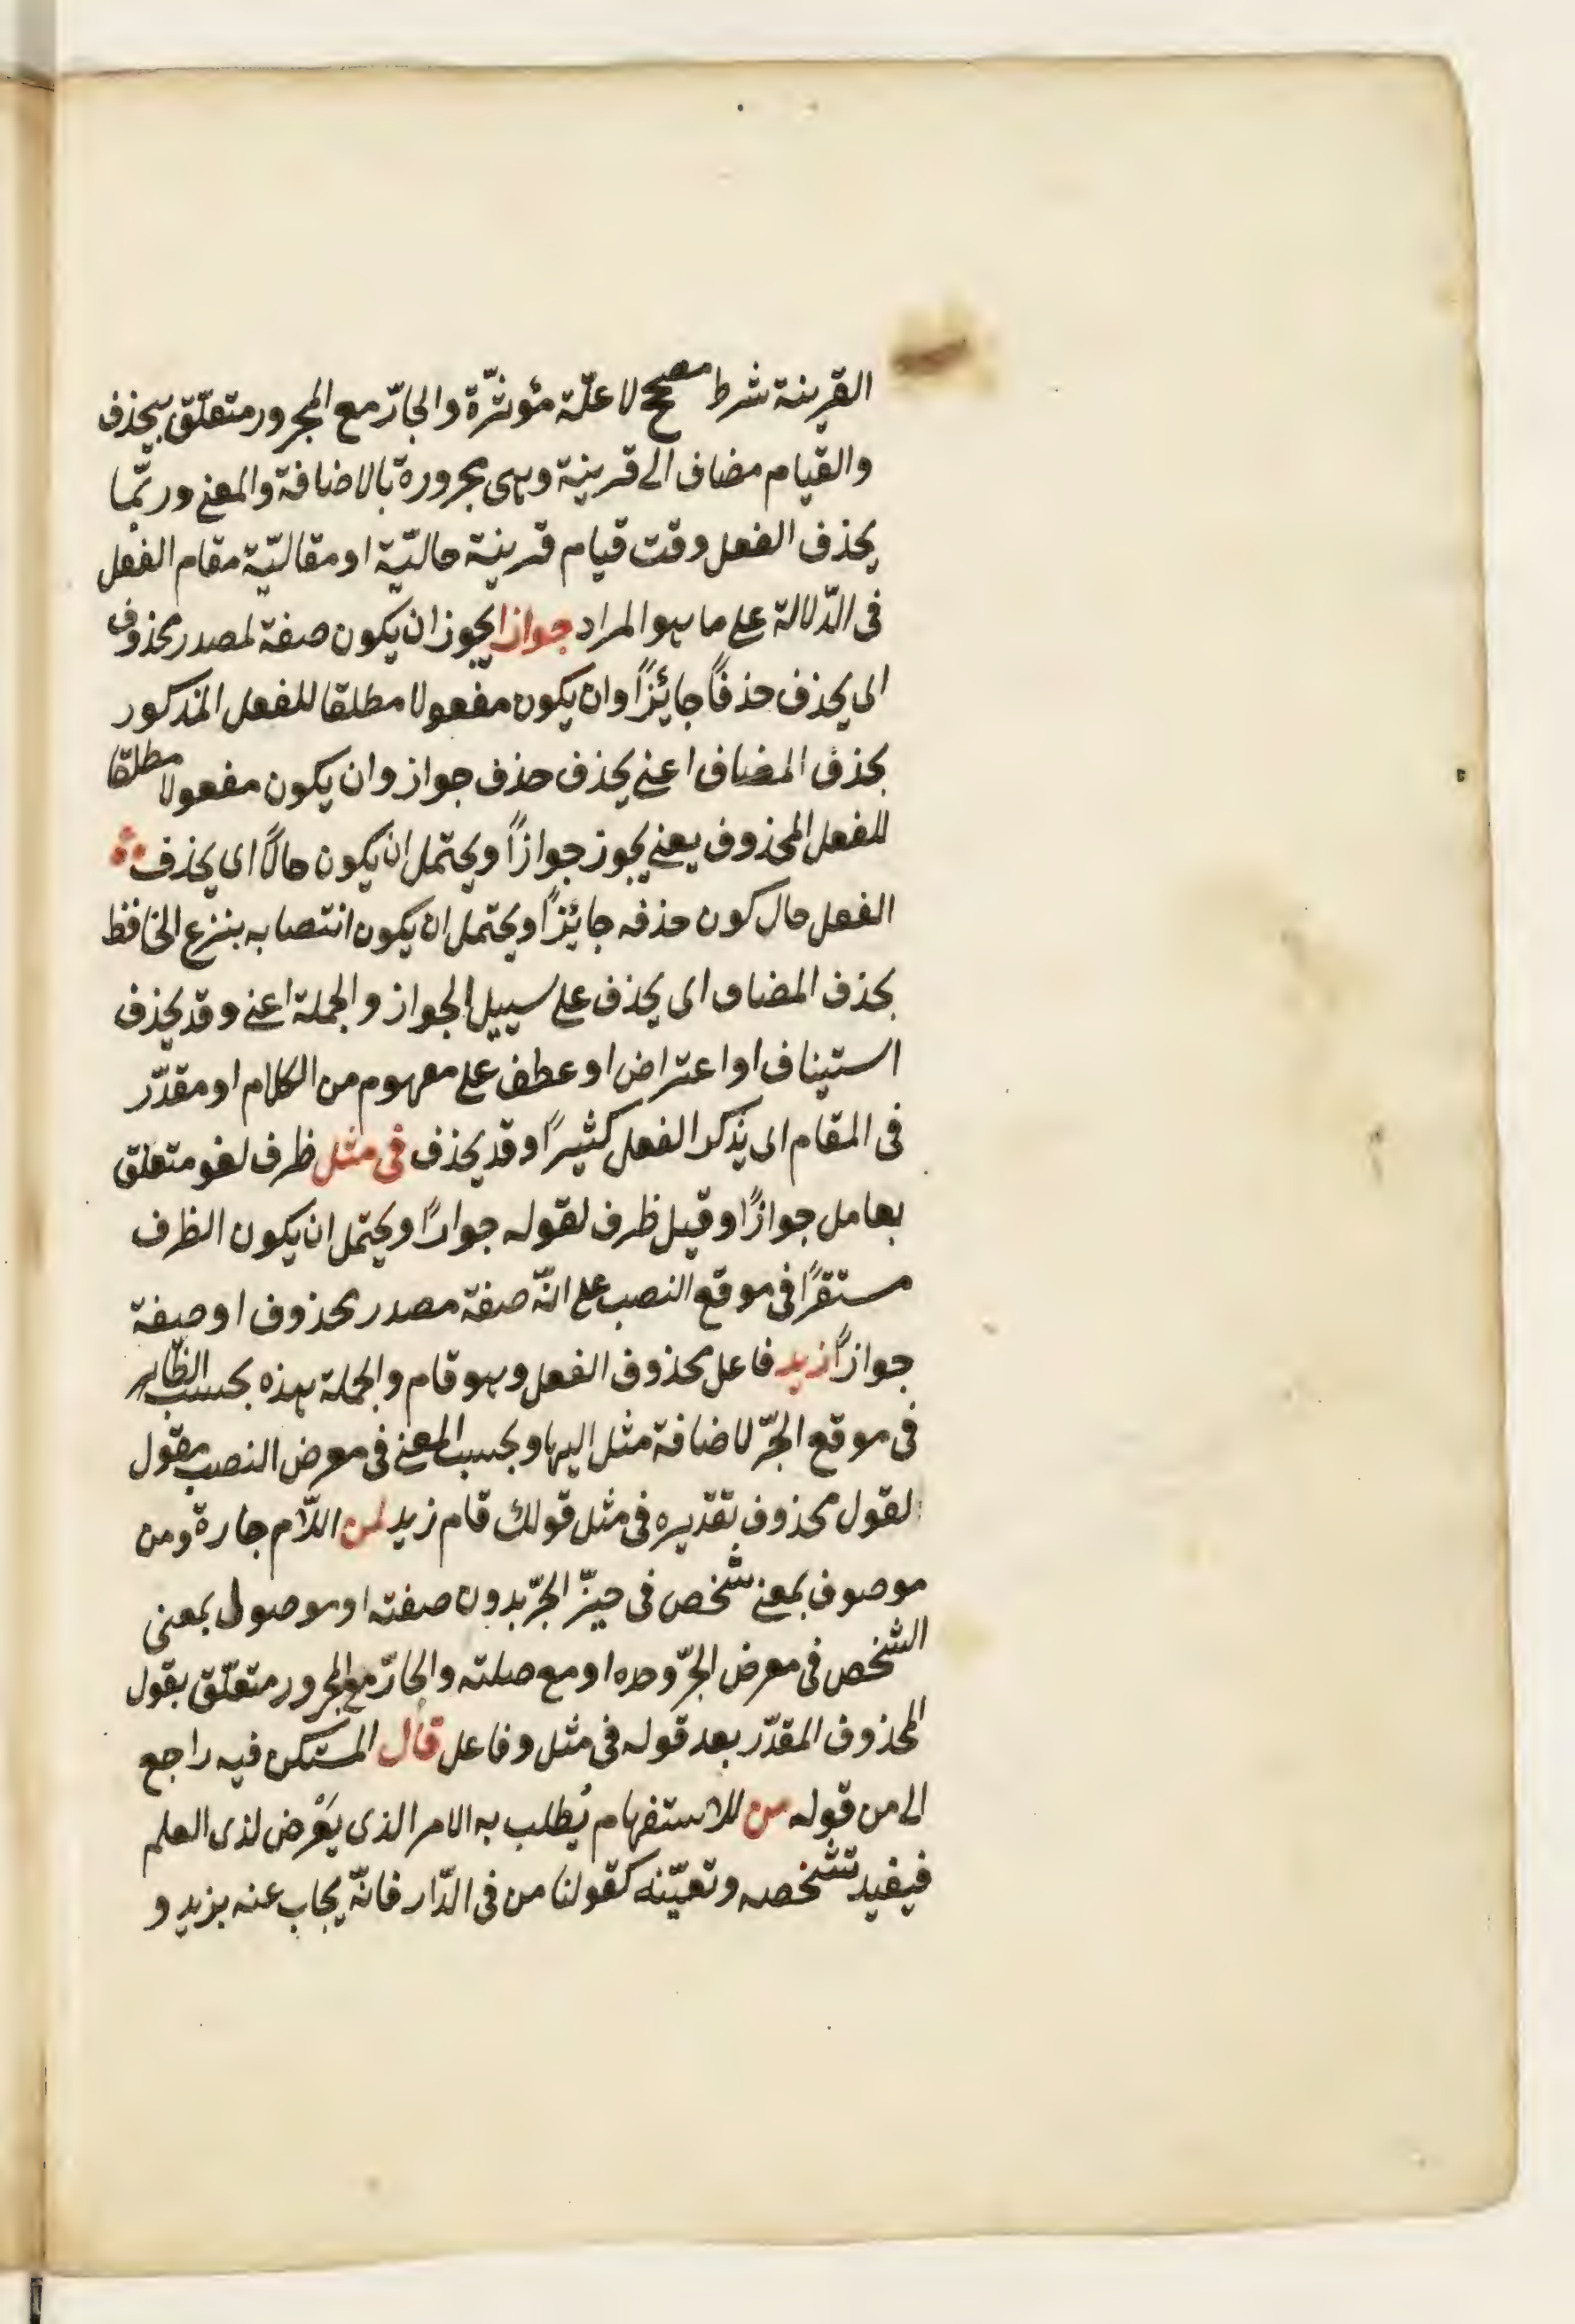 القرينة شرط مصحح لا علّة مؤثّرة والجارّ مع المجرور متعلّق بيحذف
والقيام مضاف الى قرينة وهى مجرورة بالاضافة والمعنى وربّما
يحذف الفعل وقت قيام قرينة حاليّة او مقاليّة مقام الفعل
فى الدّلالة على ما هو المراد جوازا يجوز ان يكون صفة لمصدر محذوف
اى يحذف حذفاً جائزاً وان يكون مفعولا مطلقا للفعل المذكور
بحذف المضاف اعنى يحذف حذف جواز وان يكون مفعولا مطلقا
للفعل المحذوف يعنى يجوز جوازاً ويحتمل ان يكون حالاً اى يحذف
الفعل حال كون حذفه جائزاً ويحتمل ان يكون انتصابه بنزع الخافظ
بحذف المضاف اى يحذف على سبيل الجواز والجملة اعنى وقد يحذف
استيناف او اعتراض او عطف على مفهوم من الكلام او مقدّر
فى المقام اى يذكر الفعل كثيراً وقد يحذف فى مثل ظرف لغو متعلق
بعامل جوازاً وقيل ظرف لقوله جوازاً ويحتمل ان يكون الظرف
مستقرّاً فى موقع النصب على انّه صفة مصدر محذوف او صفة
جوازاً زيد فاعل محذوف الفعل وهو قام والجملة هذه بحسب الظّاهر
فى موقع الجرّ لاضافة مثل اليها وبحسب المعنى فى معرض النصب مقول
لقول محذوف تقديره فى مثل قولك قام زيد لمن اللّام جارة ومن
موصوف بمعنى شخص فى حيّز الجرّ بدون صفته او موصول بمعنى
الشخص فى معرض الجرّ وحده او مع صلته والجارّ مع المجرور متعلّق بقول
المحذوف المقدّر بعد قوله فى مثل وفاعل قال المستكن فيه راجع
الى من قوله من للاستفهام يُطلب به الامر الذى يَعْرض لذى العلم
فيفيد تشخصه وتعيّنه كقولنا من فى الدّار فانّه يجاب عنه بزيد و